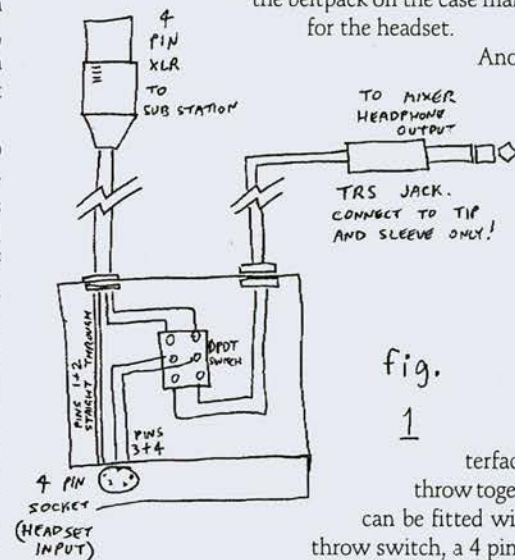 the beltpack on the case
for the headset.
4
PIN
XLR
TO
SUB STATION
TO MIXER
HEADPHONE
OUTPUT
TRS JACK.
CONNECT TO TIP
AND SLEEVE ONLY!
PINS 1+2
STRAIGHT THROUGH
DPDT
SWITCH
PINS
3+4
4 PIN
SOCKET
(HEADSET
INPUT)
fig.
1
throw
can be fitted
throw switch, a 4 pin